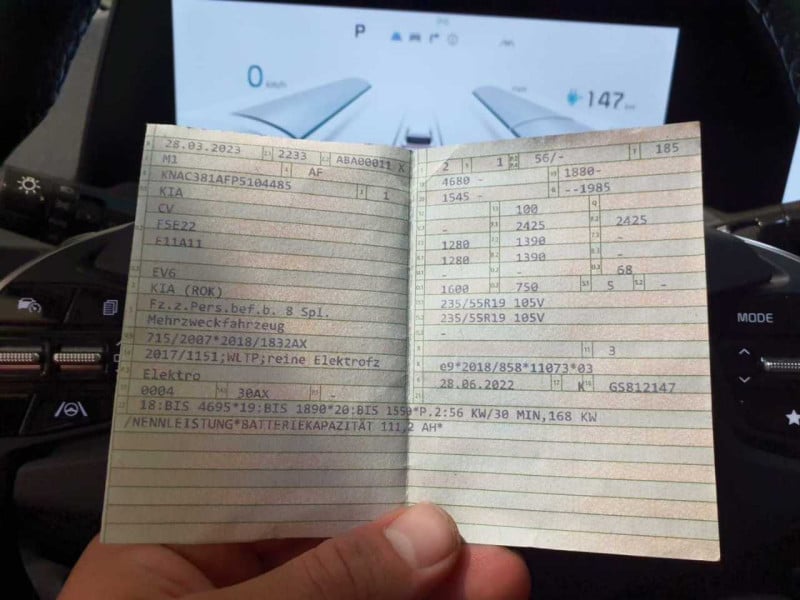 P
0 km/h
147 km
MODE
28.03.2023 2233 ABA00011 X
M1 AF
KNAC381AFP5104485 1
KIA
CV
F5E22
E11A11
EV6
KIA (ROK)
Fz.z.Pers.bef.b. 8 Spl.
Mehrzweckfahrzeug
715/2007*2018/1832AX
2017/1151;WLTP;reine Elektrofz
Elektro
0004 30AX -
2 1 56/- 185
4680 - 1880-
1545 - --1985
100
- 2425 2425
1280 1390 -
1280 1390 -
- - 68
1600 750 5 -
235/55R19 105V
235/55R19 105V
-
3
e9*2018/858*11073*03
28.06.2022 K GS812147
18:BIS 4695*19:BIS 1890*20:BIS 1550*P.2:56 KW/30 MIN,168 KW
/NENNLEISTUNG*BATTERIEKAPAZITÄT 111,2 AH*